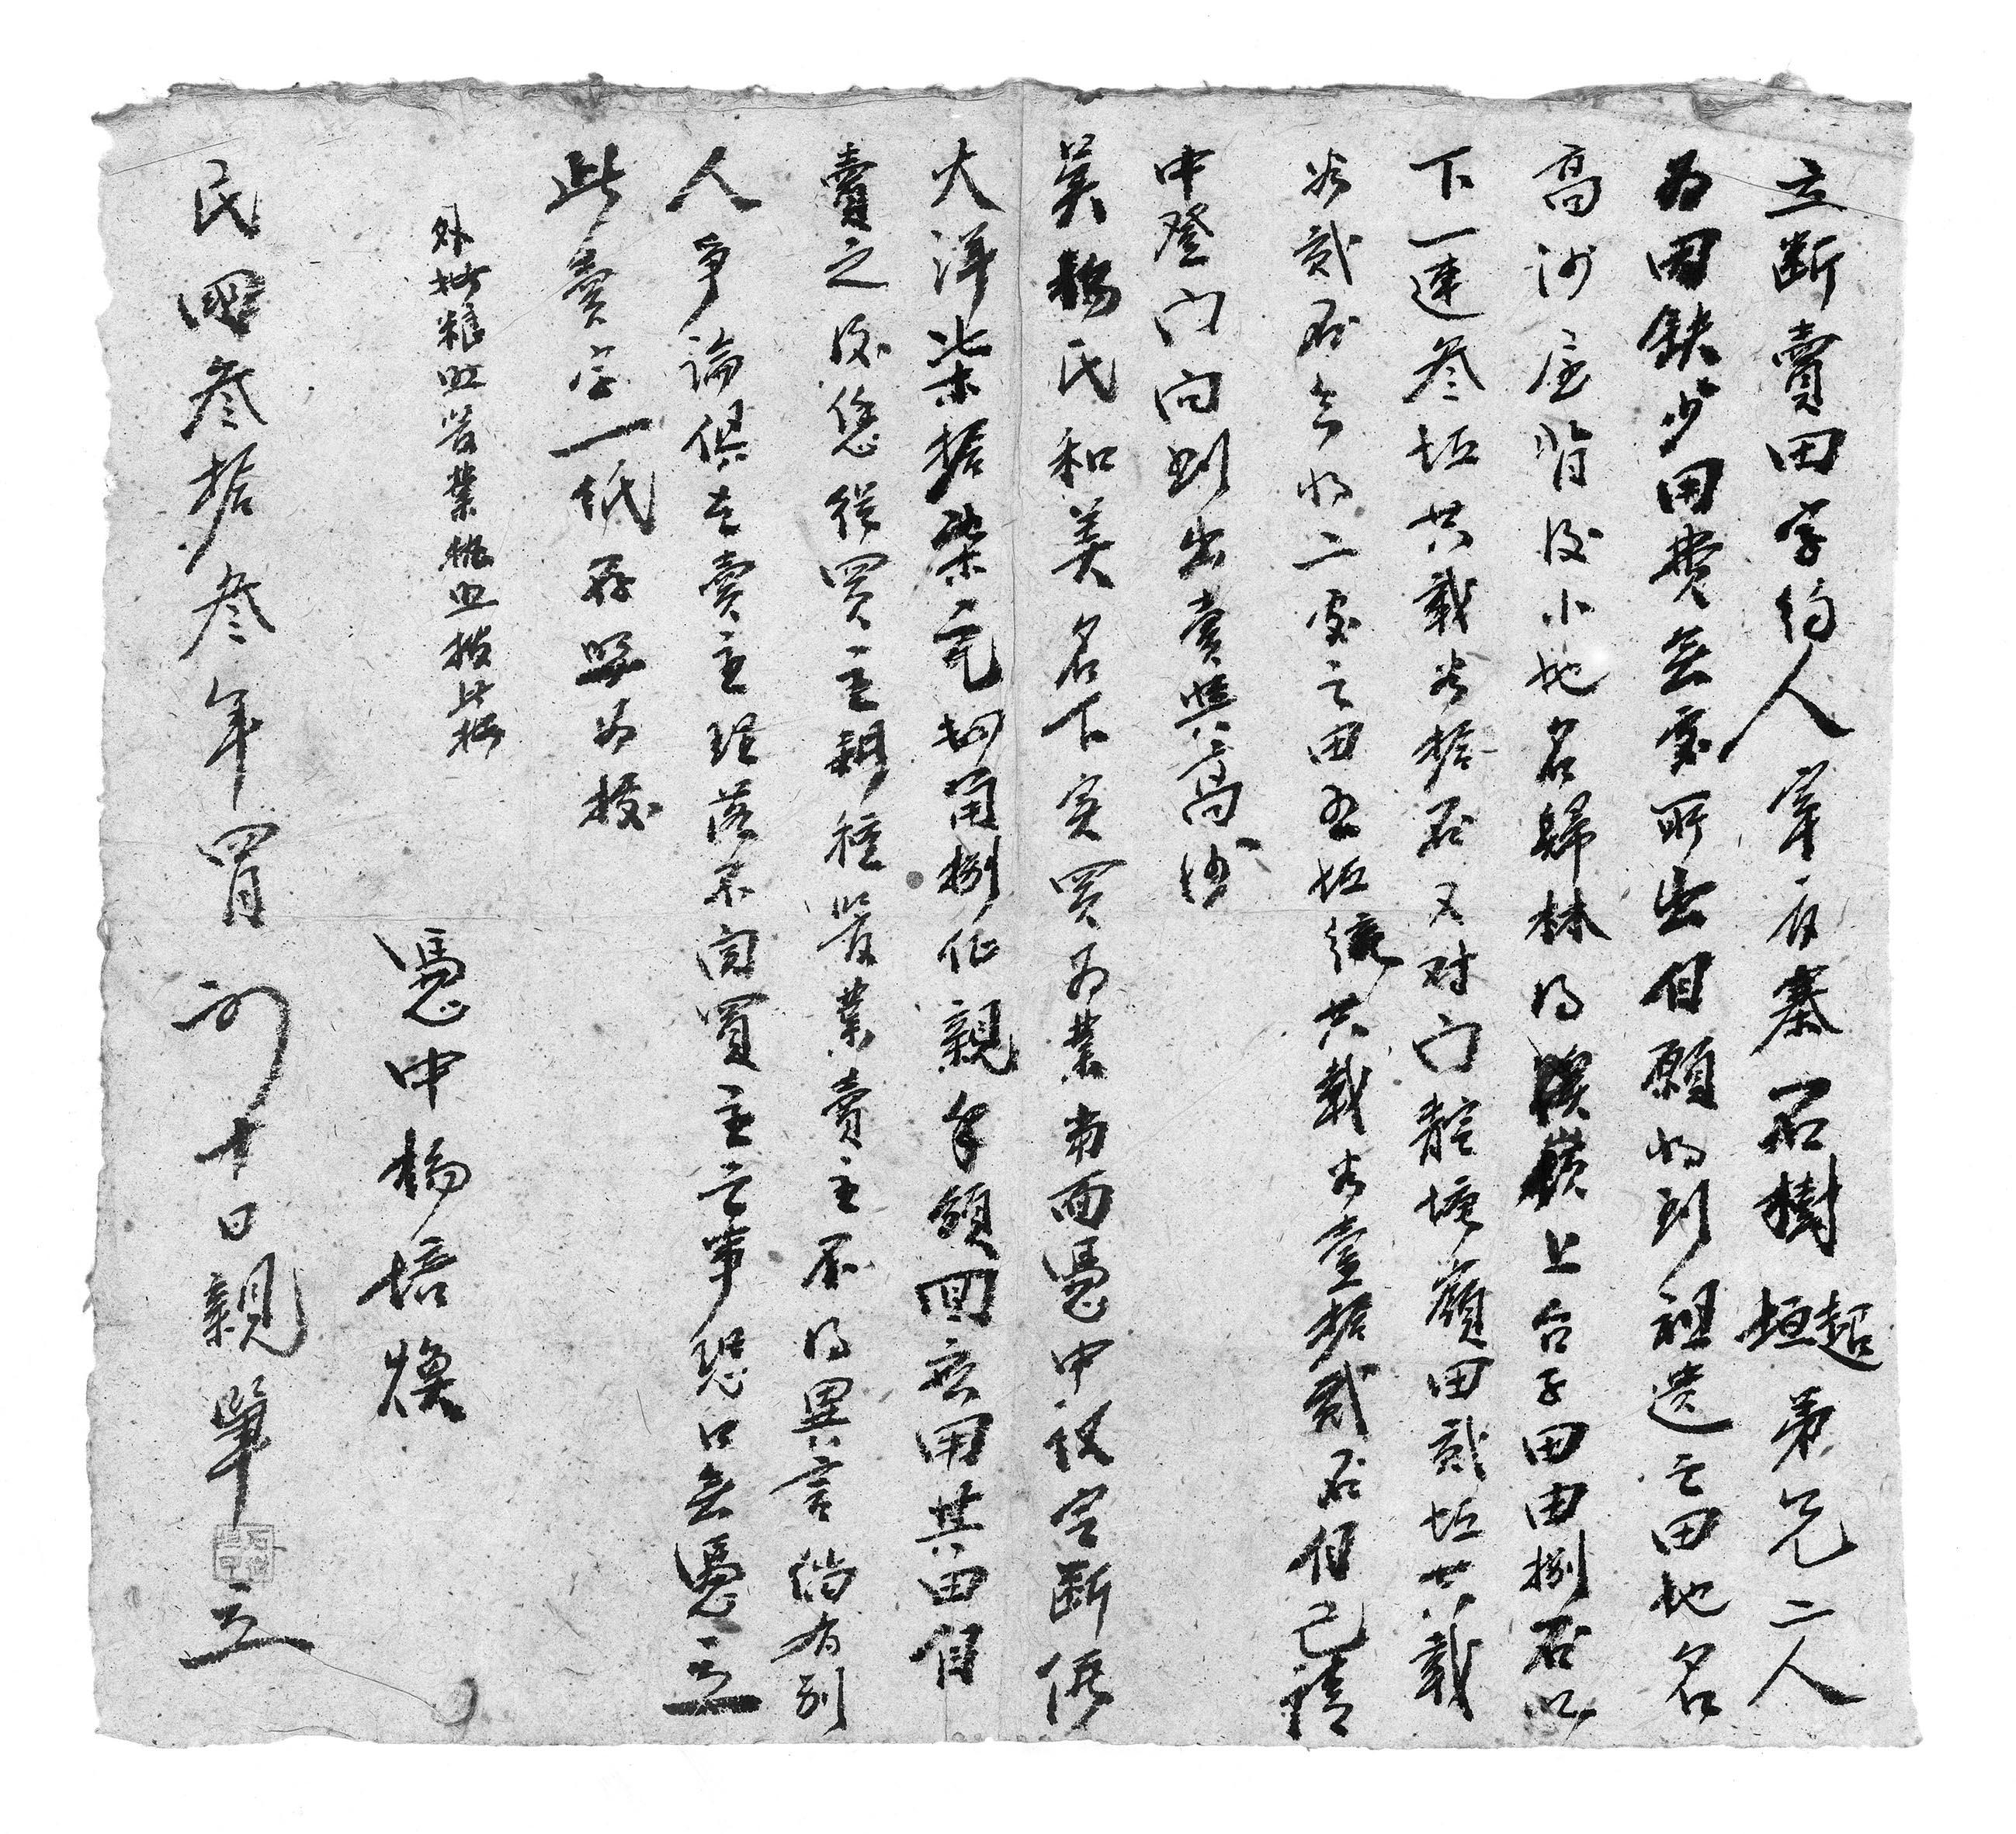 立断賣田字約人宰夜寨石樹超垣弟兄二人
為因缺少用費無家所出自願將到祖遗之田地名
高沙屋背後小地名歸林得嶺上台子田田捌石以
下一連叁坵共載谷拾石又对门龍塘嶺田貳坵共載
谷貳石今將二處之田五坵總共載谷壹拾貳石自己請
中登门向到出賣與高沙
吴楊氏和美名下實買為業当面憑中议定断價
大洋柒拾柒元四角捌仙親手領回应用其田自
賣之後恁從買主耕種管業賣主不得異言倘有别
人爭論俱在賣主理落不関買主之事恐口無憑立
此賣字一纸存照為據
外批粮照管業粮照撥此批
憑中楊培煥
民國叁拾叁年四月初十日親筆立